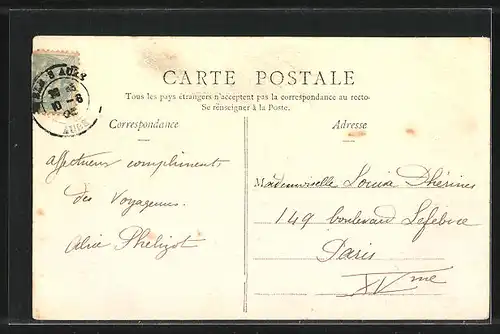 CARTE POSTALE
Tous les pays étrangers n'acceptent pas la correspondance au recto-
Se renseigner à la Poste.
Correspondance
Adresse
affectueux compliments
des Voyageurs.
Alice Phelizot
Mademoiselle Louisa Thérines
149 boulevard Lefebvre
Paris
XVme
AUBE